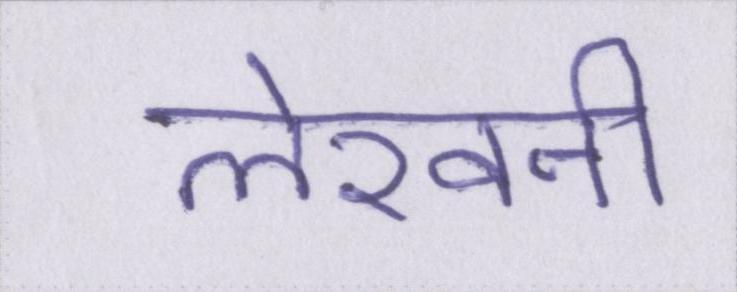 लेखनी